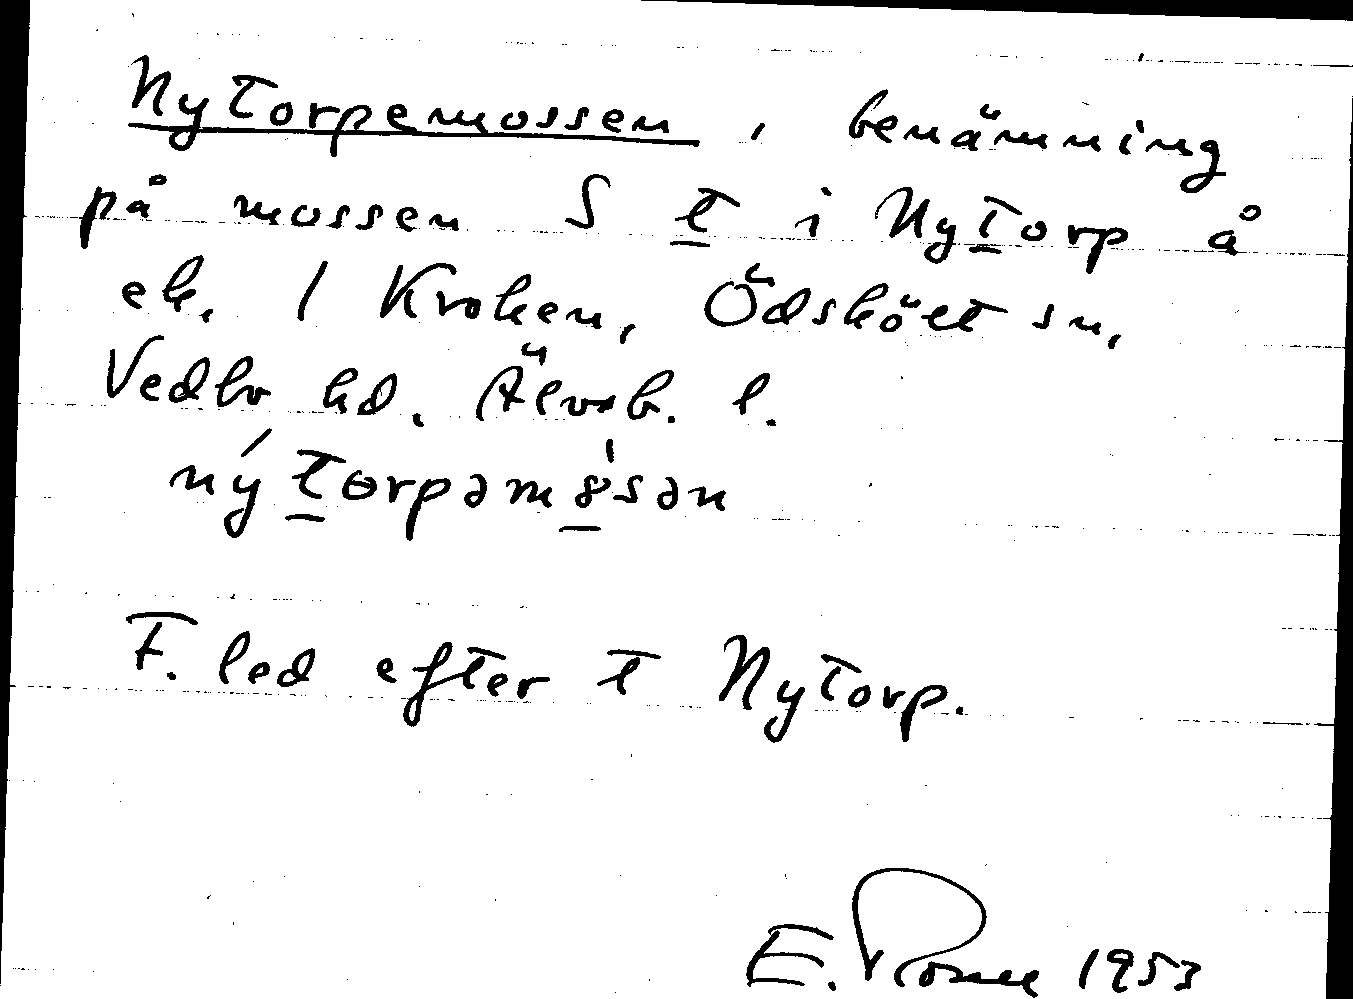 Nytorpemossen, benämning
på mossen S t i Nytorp å
ek. 1 Kroken, Ödskölt sn,
Vedbo hd. Älvsb. l.
nýtorpəmósən
F. led efter t Nytorp.
E. 1953